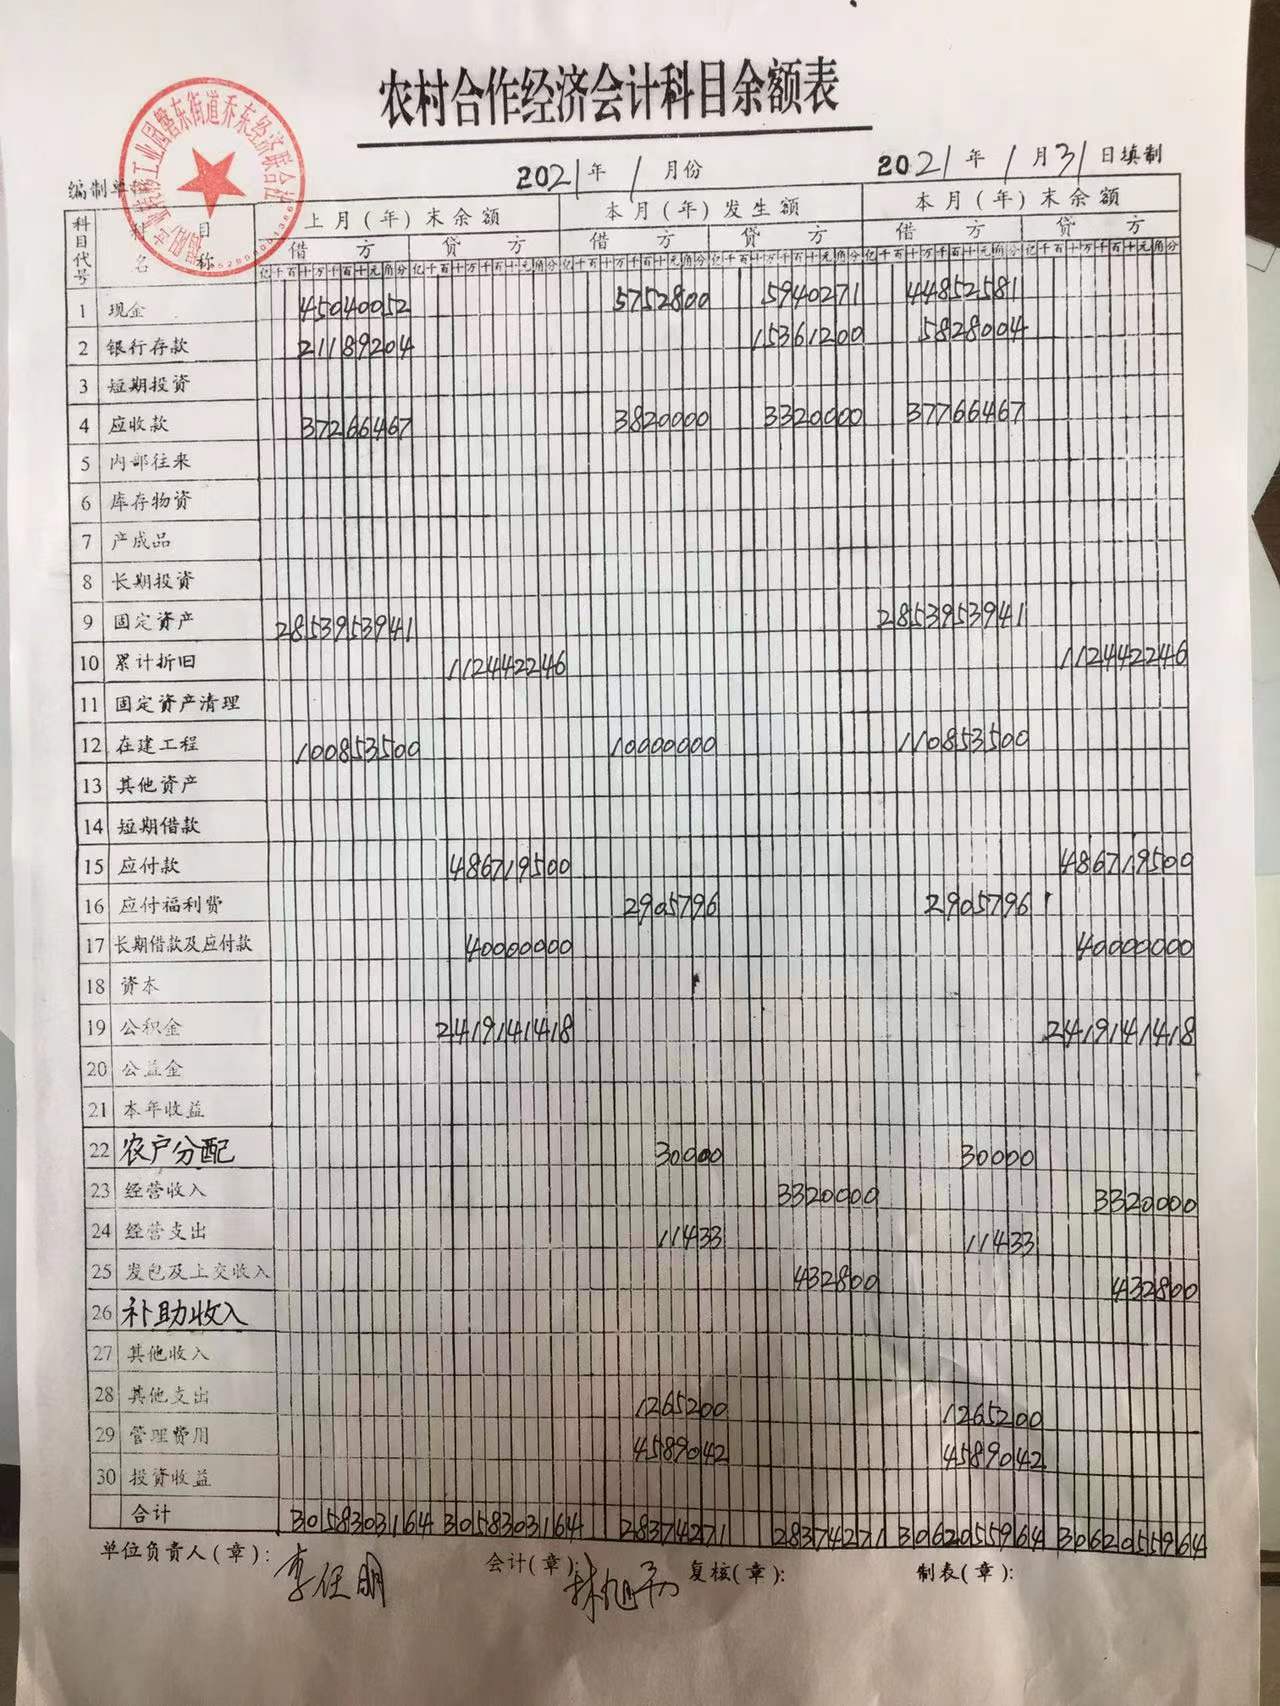 农村合作经济会计科目余额表
揭阳产业转移工业园磐东街道乔东经济联合社
编制单
2021年1月份
2021年1月31日填制
科目代号 科目名称 上月(年)末余额 本月(年)发生额 本月(年)末余额
借方 贷方 借方 贷方 借方 贷方
亿千百十万千百十元角分 亿千百十万千百十元角分 亿千百十万千百十元角分 亿千百十万千百十元角分 亿千百十万千百十元角分 亿千百十万千百十元角分
1 现金 45040052 5752800 5940271 44852581
2 银行存款 21189204 15361200 5828004
3 短期投资
4 应收款 37266467 3820000 3320000 37766467
5 内部往来
6 库存物资
7 产成品
8 长期投资
9 固定资产 2853953941 2853953941
10 累计折旧 112442246 112442246
11 固定资产清理
12 在建工程 100853500 10000000 110853500
13 其他资产
14 短期借款
15 应付款 486719500 486719500
16 应付福利费 2905796 2905796
17 长期借款及应付款 40000000 40000000
18 资本
19 公积金 2419141418 2419141418
20 公益金
21 本年收益
22 农户分配 30000 30000
23 经营收入 3320000 3320000
24 经营支出 11433 11433
25 发包及上交收入 432800 432800
26 补助收入
27 其他收入
28 其他支出 1265200 1265200
29 管理费用 4589042 4589042
30 投资收益
合计 3058303164 3058303164 28374271 28374271 3062055964 3062055964
单位负责人(章): 会计(章): 复核(章): 制表(章):